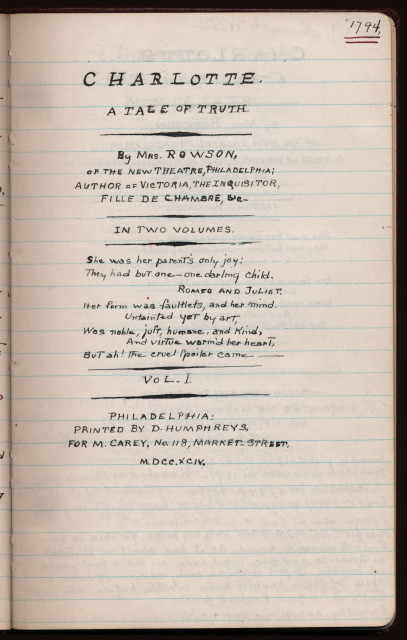 1794.
CHARLOTTE.
A TALE OF TRUTH.
By Mrs. ROWSON,
OF THE NEW THEATRE, PHILADELPHIA;
AUTHOR OF VICTORIA, THE INQUISITOR,
FILLE DE CHAMBRE, &c-
IN TWO VOLUMES.
She was her parent's only joy:
They had but one—one darling child.
ROMEO AND JULIET.
Her form was faultleſs, and her mind.
Untainted yet by art,
Was noble, juſt, humane, and kind,
And virtue warm'd her heart,
But ah! the cruel ſpoiler came—
VOL. I.
PHILADELPHIA:
PRINTED BY D. HUMPHREYS,
FOR M. CAREY, No. 118, MARKET-STREET.
M.DCC.XCIV.